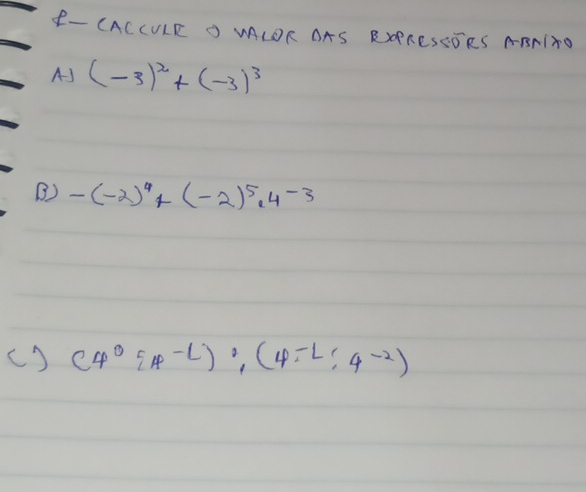 1- CALCULE O VALOR DAS EXPRESSÕES ABAIXO
A) (-3)² + (-3)³
B) -(-2)⁴ + (-2)⁵.4⁻³
C) (4⁰ : 4⁻¹) : (4⁻¹ : 4⁻²)